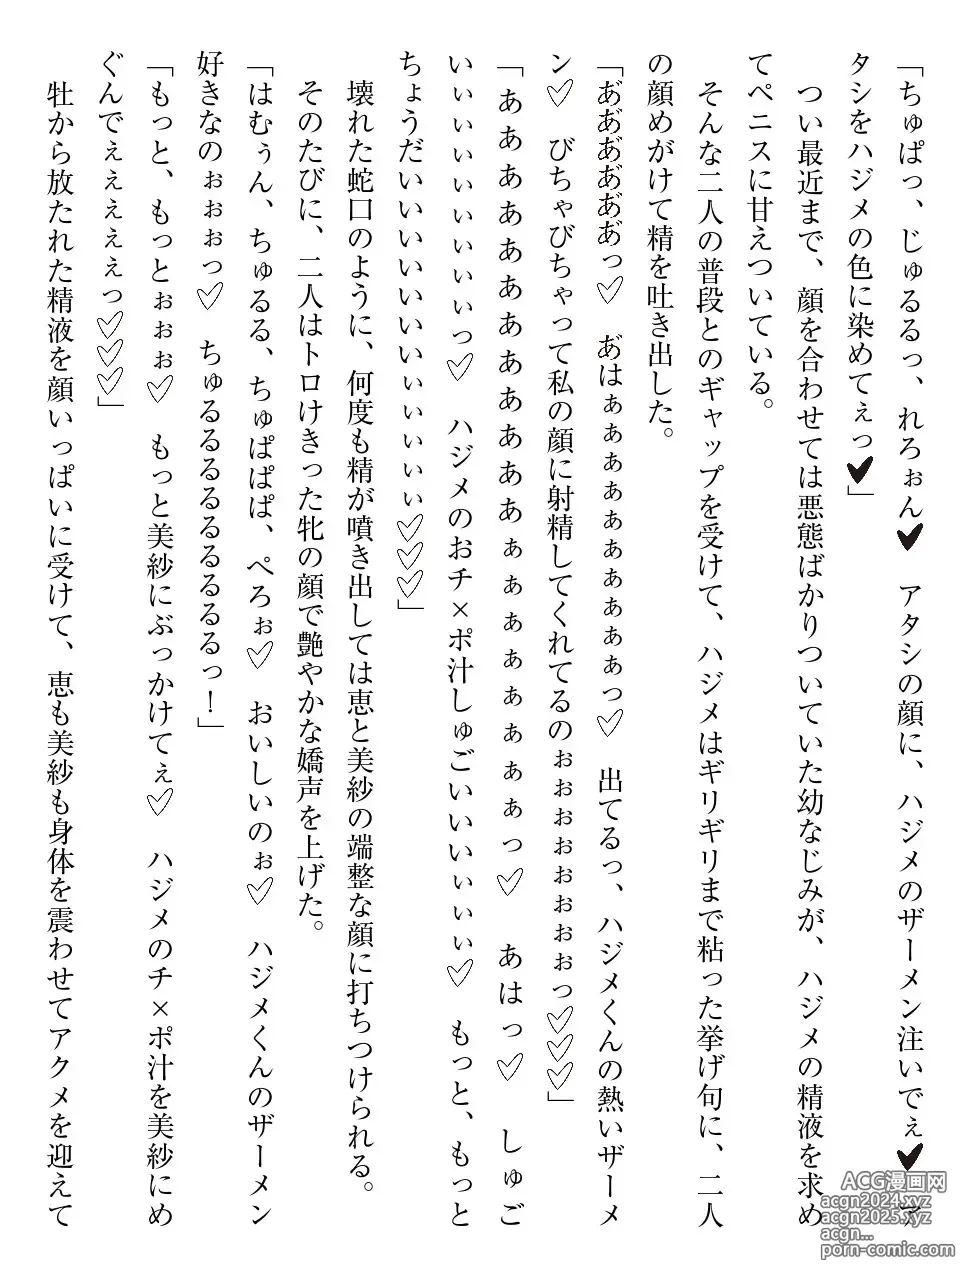 「ちゅぱっ、じゅるるっ、れろぉん♥　アタシの顔に、ハジメのザーメン注いでぇ♥　ア
タシをハジメの色に染めてぇっ♥」
　つい最近まで、顔を合わせては悪態ばかりついていた幼なじみが、ハジメの精液を求め
てペニスに甘えついている。
　そんな二人の普段とのギャップを受けて、ハジメはギリギリまで粘った挙げ句に、二人
の顔めがけて精を吐き出した。
「あ゛あ゛あ゛あ゛あ゛っ♡　あ゛はぁぁぁぁぁぁぁぁぁっ♡　出てるっ、ハジメくんの熱いザーメ
ン♡　びちゃびちゃって私の顔に射精してくれてるのぉぉぉぉぉぉぉっ♡♡♡」
「ああああああああああああああああぁぁぁぁぁぁぁぁっ♡　あはっ♡　しゅご
いぃぃぃぃぃぃぃぃっ♡　ハジメのおチ×ポ汁しゅごいいいいぃぃぃ♡　もっと、もっと
ちょうだいいいいいいいぃぃぃぃぃ♡♡♡」
　壊れた蛇口のように、何度も精が噴き出しては恵と美紗の端整な顔に打ちつけられる。
　そのたびに、二人はトロけきった牝の顔で艶やかな嬌声を上げた。
「はむぅん、ちゅるる、ちゅぱぱぱ、ぺろぉ♡　おいしいのぉ♡　ハジメくんのザーメン
好きなのぉぉぉっ♡　ちゅるるるるるるるるるるるっ！」
「もっと、もっとぉぉぉ♡　もっと美紗にぶっかけてぇ♡　ハジメのチ×ポ汁を美紗にめ
ぐんでぇぇぇぇぇっ♡♡♡」
　牡から放たれた精液を顔いっぱいに受けて、恵も美紗も身体を震わせてアクメを迎えて
ACG漫画网
acgn2024.xyz
acgn2025.xyz
acgn...
porn-comic.com